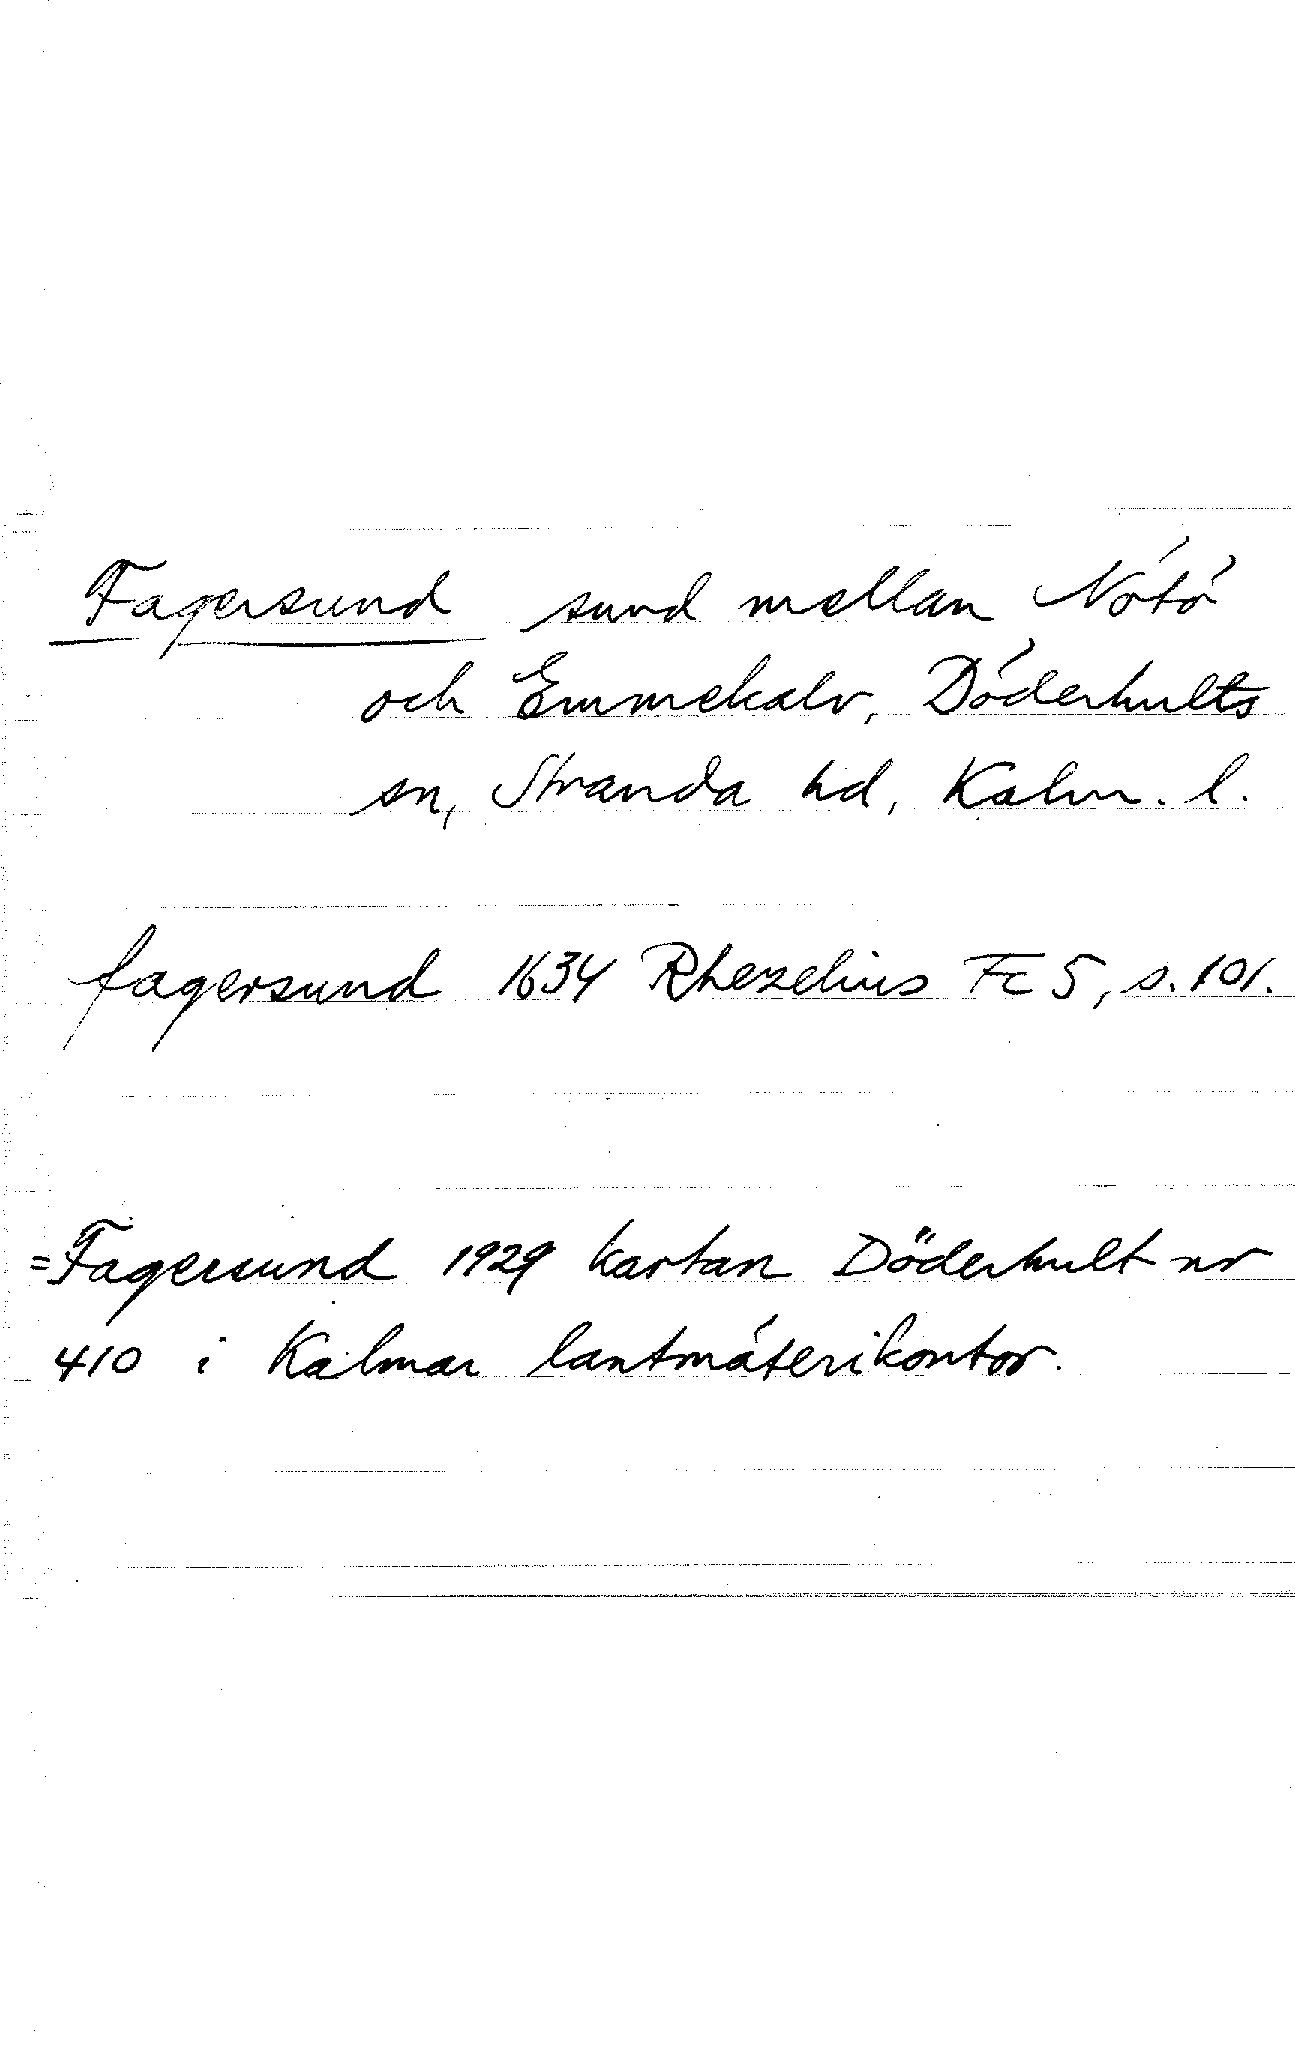 Fagersund sund mellan Nötö
och Emmekalv, Döderhults
sn, Stranda hd, Kalm. l.
fagersund 1634 Rhezelius Fc 5, s. 101.
=Fagersund 1929 kartan Döderhult nr
410 i Kalmar lantmäterikontor.